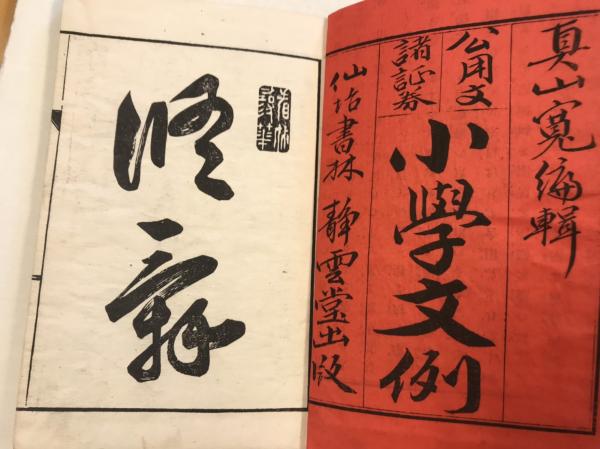 真山寬編輯
公用文
諸証券
小學文例
仙坮書林 靜雲堂出版
修辞